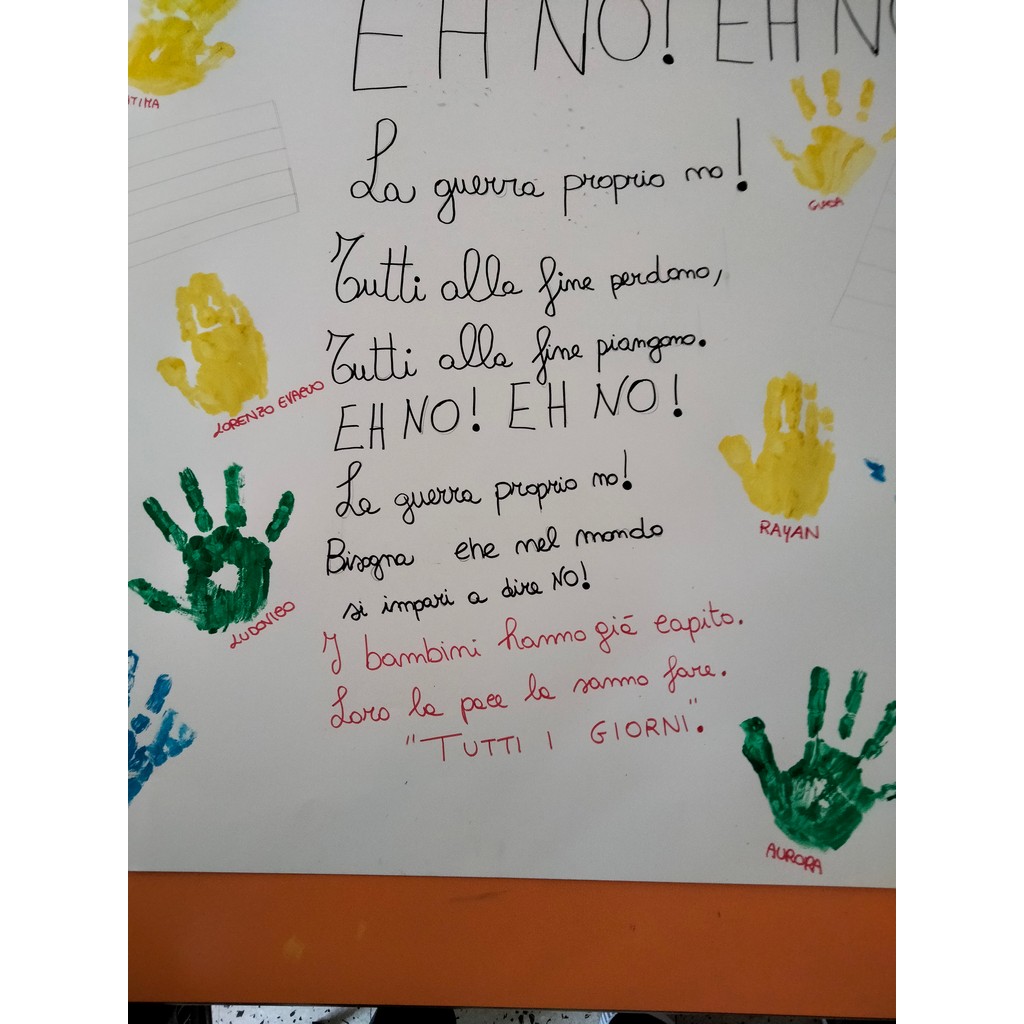 EH NO! EH NO
La guerra proprio no!
GIADA
Tutti alla fine perdono,
Tutti alla fine piangono.
LORENZO EVARUO
EH NO! EH NO!
La guerra proprio no!
RAYAN
Bisogna che nel mondo
si impari a dire NO!
LUDOVICO
I bambini hanno già capito.
Loro la pace la sanno fare.
"TUTTI I GIORNI".
AURORA